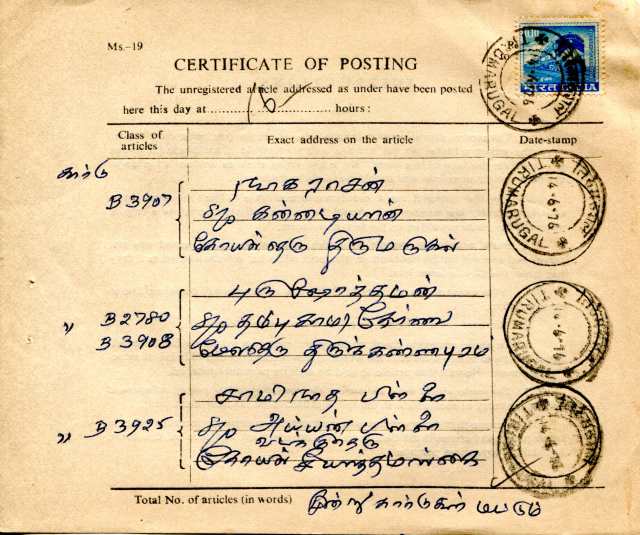 Ms.–19
CERTIFICATE OF POSTING
The unregistered article addressed as under have been posted
here this day at 16 hours:
Class of articles
Exact address on the article
Date-stamp
भारत INDIA
TIRUMARUGAL
கார்டு
B 3907
நாகராசன்
த/பெ கண்ணையன்
கோயில் தெரு திருமருகல்
TIRUMARUGAL
14.6.76
" B 2780
B 3908
புருஷோத்தமன்
மேலத்தெரு திருக்கண்ணபுரம்
TIRUMARUGAL
14.6.76
" B 3925
சாமிநாத பிள்ளை
த/பெ அய்யன் பிள்ளை
வடக்குத்தெரு
Total No. of articles (in words) மூன்று கார்டுகள் மட்டும்